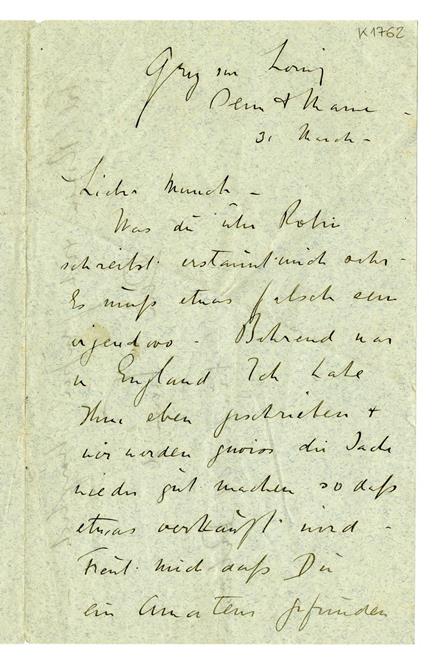 K1762
Grez sur Loing
Seine & Marne -
31 March -
Lieber Munch -
Was du über Rohn
schreibst erstaunt mich sehr -
Es muß etwas falsch sein
irgendwo - Behrend war
in England Ich habe
Ihm eben geschrieben +
wir werden gewiss die Sache
wieder gut machen so daß
etwas verkauft wird -
Freut mich daß Du
ein Amateur gefunden